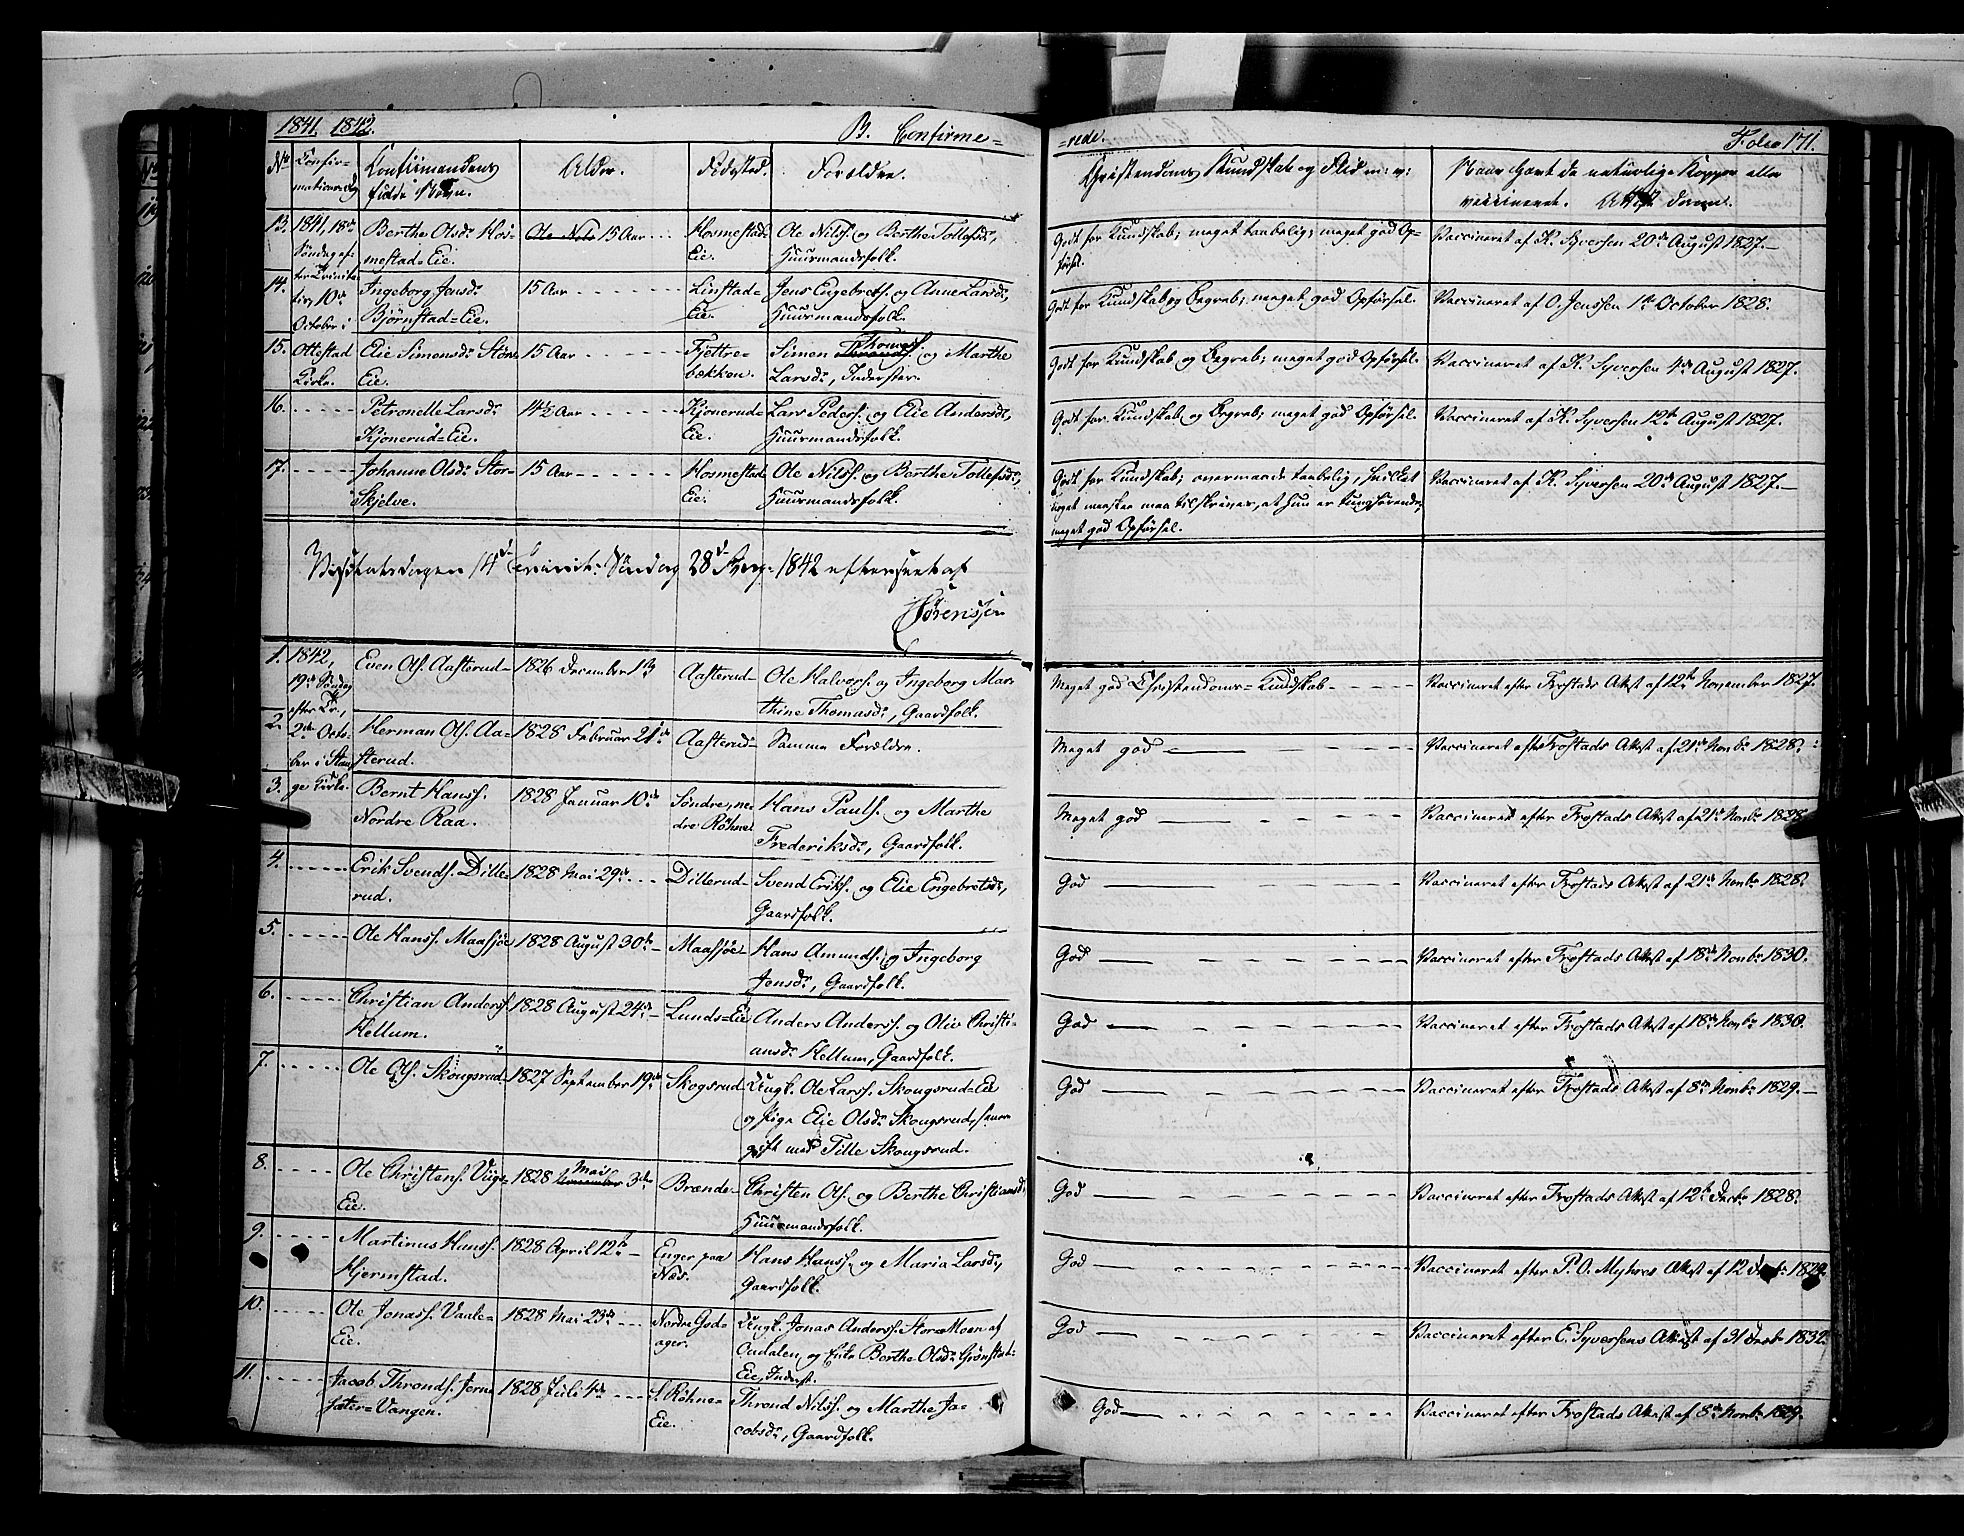 1841. 1842. B. Confirme=
=rede. Folio 171.
No Confir=mations Dag Confirmandens fulde Navn. Alder. Fødested. Forældre. Christendoms Kundskab og Flid m: v: Naar havt de naturlige Kopper eller vaccineret. Attest derom.
13. 1841, 18de Berthe Olsdr Hos= Ole Nils 15 Aar Hosmestad= Ole Nilss. og Berthe Tollefsdr, Godt for Kundskab; meget taabelig; meget god Op= Vaccineret af K. Syversen 20de August 1827.
Søndag ef= mestad=Eie. Eie. Huusmandsfolk. førsel.
14. ter Trinita= Ingeborg Jensdr 15 Aar Linstad= Jens Engebrets. og Anne Larsdr, Godt for Kundskab og Begreb; meget god Opførsel. Vaccineret af O. Jenssen 1ste October 1828.
tis, 10de Bjørnstad=Eie. Eie. Huusmandsfolk.
October i
15. Ottestad Elie Simensdr Støre 15 Aar Fjettre= Simen Throndss. Thomass. og Marthe Godt for Kundskab og Begreb; meget god Opførsel. Vaccineret af K. Syversen 4de August 1827.
Kirke. Eie. bækken. Larsdr, Inderster.
16. Petronelle Larsdr 14½ Aar Kjonerud= Lars Peders. og Elie Andersdr, Godt for Kundskab og Begreb; meget god Opførsel. Vaccineret af K. Syversen 12te August 1827.
Kjonerud=Eie. Eie. Huusmandsfolk.
17. Johanne Olsdr Stor= 15 Aar Hosmestad Ole Nilss. og Berthe Tollefsdr, Godt for Kundskab; overmaade taabelig, hvilket Vaccineret af K. Syversen 20de August 1827.
Skjelve. Eie. Huusmandsfolk. noget maaskee maa tilskrives, at hun er tunghørende;
meget god Opførsel.
Visitatsdagen 14de Trinit: Søndag 28d Aug. 1842 efterseet af
Sørenssen
1. 1842, Even Ols. Aasterud 1826 December 1ste Aasterud Ole Halvors. og Ingeborg Mar= Meget god Christendoms=Kundskab Vaccineret efter Frostads Attest af 12te November 1827.
19de Søndag thine Thomasdr, Gaardfolk.
efter Tr.,
2. 2den Octo= Herman Ols. Aa= 1828 Februar 21de Aasterud Samme Forældre. Meget god Vaccineret efter Frostads Attest af 21de Novbr 1828.
ber i Stan= sterud.
3. ge Kirke. Bernt Hanss. 1828 Januar 10de Søndre, ne= Hans Pauls. og Marthe Meget god Vaccineret efter Frostads Attest af 21de Novbr 1828.
Nordre Raa. dre Røhne Frederiksdr, Gaardfolk.
4. Erik Svends. Dille= 1828 Mai 29de Dillerud Svend Eriks. og Elie Engebretsdr, God Vaccineret efter Frostads Attest af 21de Novbr 1828.
rud. Gaardfolk.
5. Ole Hanss. Maafsjøe 1828 August 30te Maafsjøe Hans Amunds. og Ingeborg God Vaccineret efter Frostads Attest af 18de Novbr 1830.
Jensdr, Gaardfolk.
6. Christian Anderss. 1828 August 24de Lunds=Eie Anders Anderss. og Oliv Christi= God Vaccineret efter Frostads Attest af 18de Novbr 1830.
Hellum. ansdr Hellum, Gaardfolk.
7. Ole Ols. Skougsrud 1827 September 19de Skogsrud Ungk. Ole Larss. Skougsrud=Eie God Vaccineret efter Frostads Attest af 8de Novbr 1829.
og Pige Elie Olsdr Skougsrud, senere
gift med Tille Skougsrud.
8. Ole Christens. Viige= 1828 November Mai 3de Brænde Christen Ols. og Berthe Christiansdr, God Vaccineret efter Frostads Attest af 12te Decbr 1828.
Eie. Huusmandsfolk.
9. Martinus Hanss. 1828 April 12te Enger paa Hans Hanss. og Maria Larsdr, God Vaccineret efter P. O. Myhres Attest af 12 Decbr 1829.
Hjermstad. Næs. Gaardfolk.
10. Ole Jonass. Vaale= 1828 Mai 23de Nordre God= Ungk. Jonas Anderss. Store Moen af God Vaccineret efter E. Syversens Attest af 31 Decbr 1832.
Eie. ager. Oudalen og Enke Berthe Olsdr Grønstad=
Eie, Inderst.
11. Jacob Thronds. Jern 1828 Juli 4de S. Røhne= Thrond Nilss. og Marthe Ja= God Vaccineret efter Frostads Attest af 8de Novbr 1829.
sæter=Vangen. Eie. cobsdr, Gaardfolk.